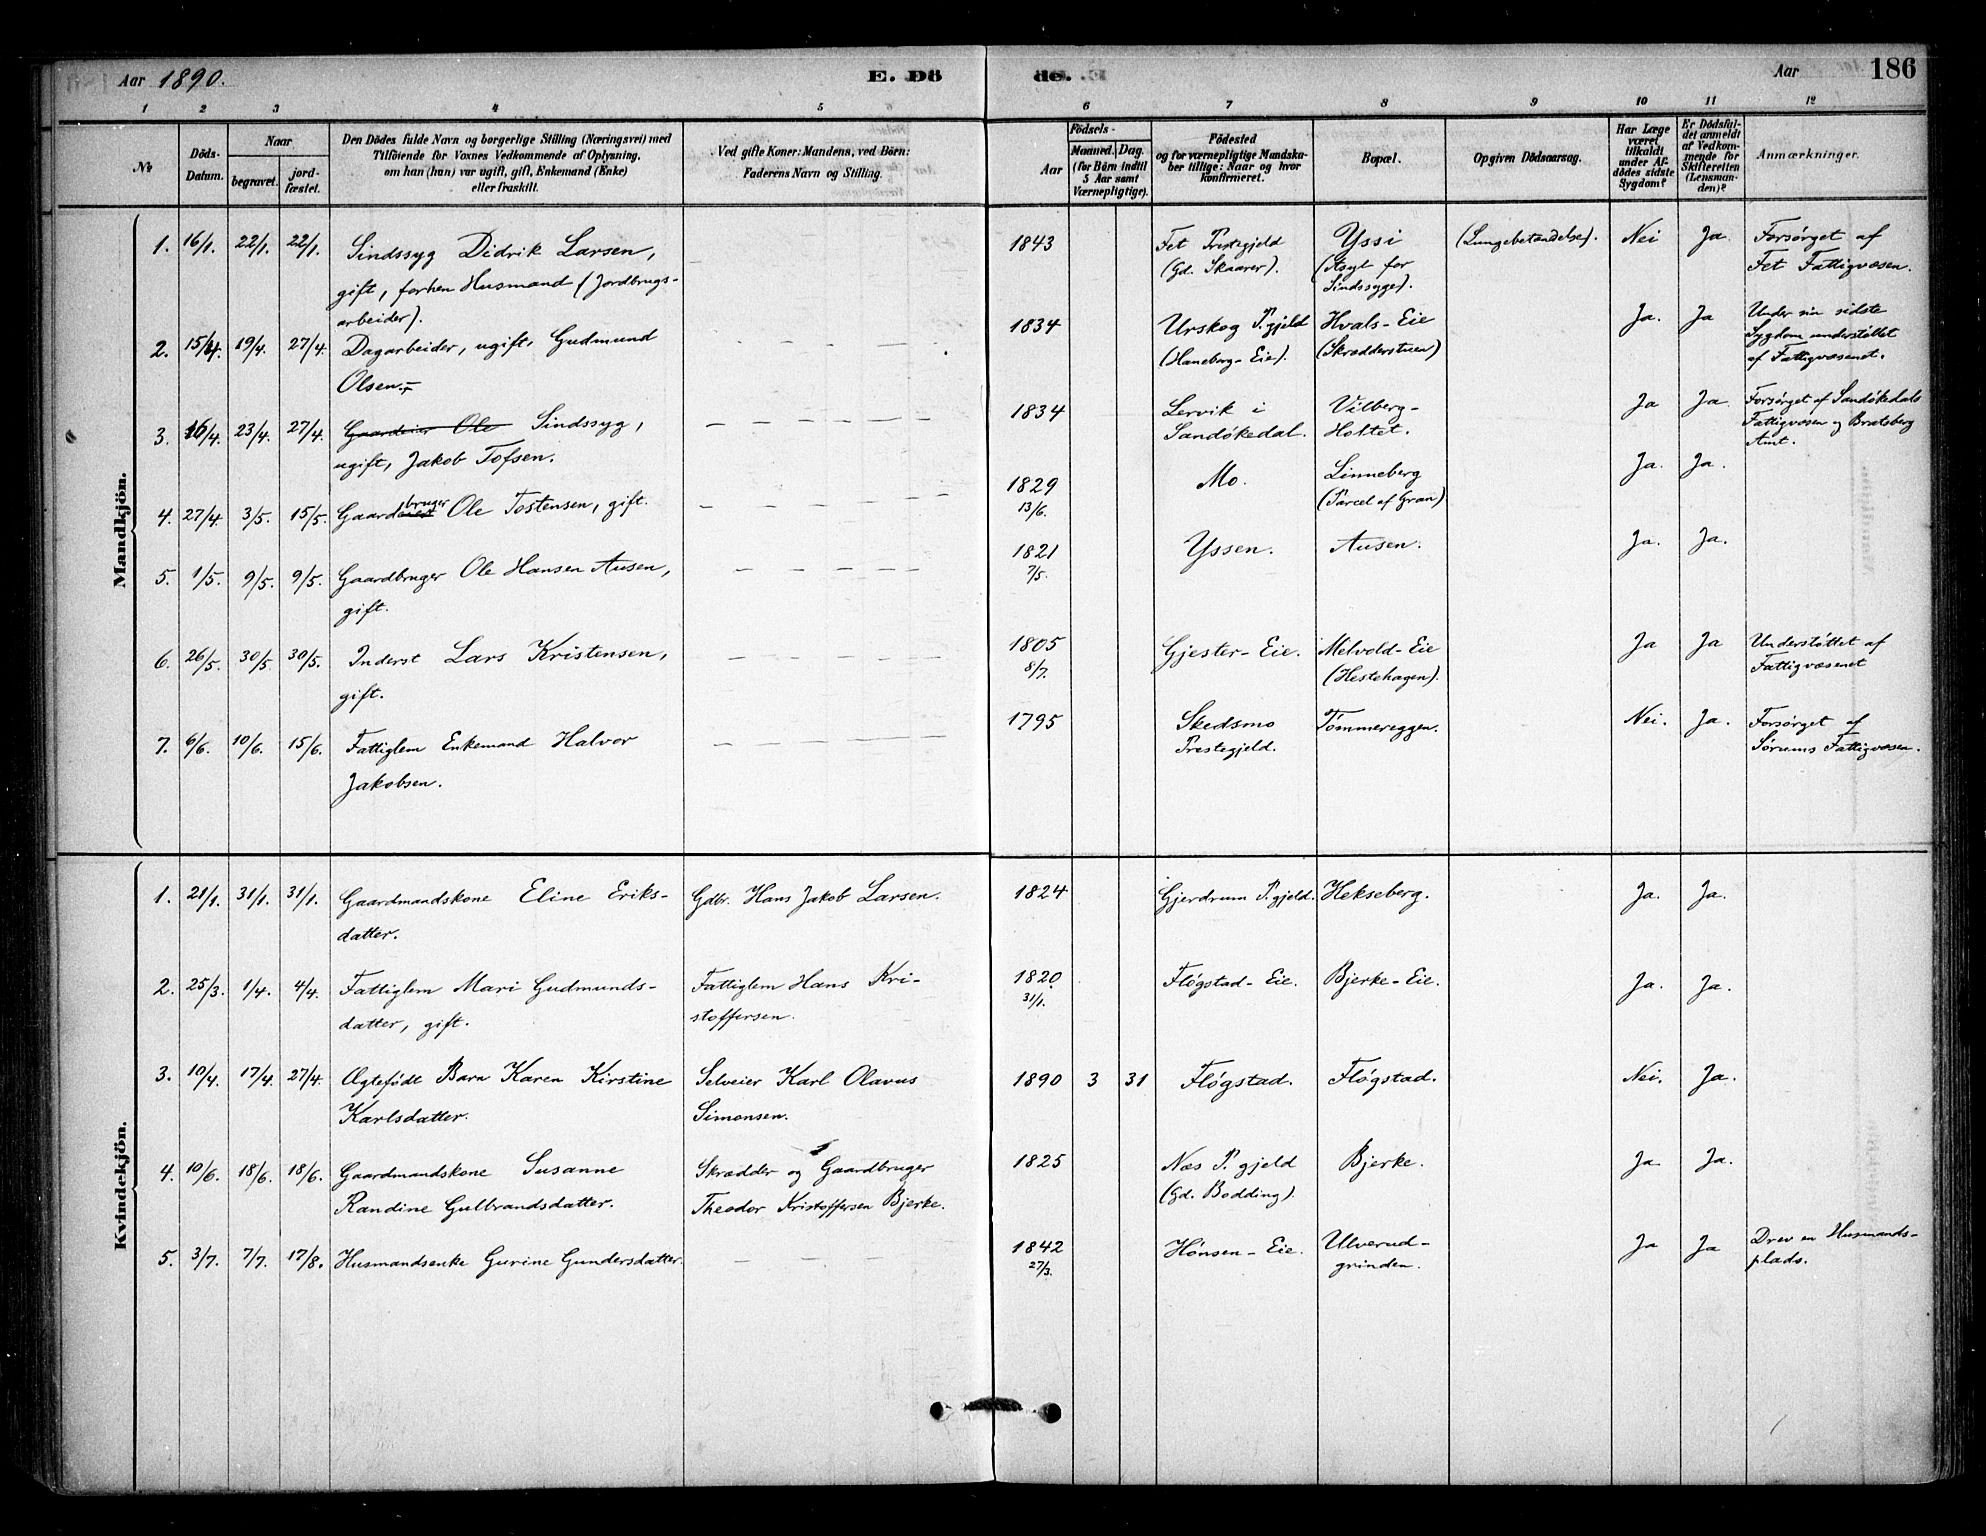 Aar 1890. E. Dö
de. Aar 186
1 2 3 4 5 6 7 8 9 10 11 12
№ Döds-Datum. Naar begravet. jordfæstet. Den Dödes fulde Navn og borgerlige Stilling (Næringsvei) med Tilföiende for Voxnes Vedkommende af Oplysning, om han (hun) var ugift, gift, Enkemand (Enke) eller fraskilt. Ved gifte Koner: Mandens, ved Börn: Faderens Navn og Stilling. Födsels- Aar Maaned. Dag. (for Börn indtil 5 Aar samt Værnepligtige). Födested og for værnepligtige Mandskaber tillige: Naar og hvor konfirmeret. Bopæl. Opgiven Dödsaarsag. Har Læge været tilkaldt under Afdödes sidste Sygdom? Er Dödsfaldet anmeldt af Vedkommende for Skifteretten (Lensmanden)? Anmærkninger.
Mandkjön.
1. 16/1. 22/1. 22/1. Sindssyg Didrik Larsen, — 1843 Fet Prestegjeld Yssi (Lungebetændelse). Nei Ja. Forsörget af
gift, forhen Husmand (Jordbrugs- (Gd. Skaarer). (Asyl for Fet Fattigvæsen.
arbeider). Sindssyge).
2. 15/4. 19/4. 27/4. Dagarbeider, ugift, Gudmund — — — — 1834 Urskog P.gjeld Hvals-Eie Ja. Ja Under sin sidste
Olsen. (Haneborg-Eie). (Skrædderstuen) Sygdom understöttet
af Fattigvæsenet.
3. 16/4. 23/4. 27/4. Gaardeier Ole Sindssyg, — — — — — 1834 Lervik i Vilberg- Ja Ja Forsörget af Sandökedals
ugift, Jakob Tofsen. Sandökedal. Holtet. Fattigvæsen og Bratsberg
Amt.
4. 27/4. 3/5. 15/5. Gaardbruger Ole Tostensen, gift. — — — — — 1829 Mo. Linneberg Ja. Ja.
13/6. (Parcel af Gran)
5. 1/5. 9/5. 9/5. Gaardbruger Ole Hansen Ausen, — — — — — 1821 Yssen. Ausen. Ja. Ja.
gift. 7/5.
6. 26/5. 30/5. 30/5. Inderst Lars Kristensen, — — — — — 1805 Gjester-Eie. Melvold-Eie Ja Ja Understöttet af
gift. 8/7. (Hestehagen). Fattigvæsenet
7. 6/6. 10/6. 15/6. Fattiglem Enkemand Halvor — — — — — 1795 Skedsmo Tömmereggen. Nei. Ja. Forsörget af
Jakobsen. Prestegjeld. Sörums Fattigvæsen.
Kvindekjön.
1. 21/1. 31/1. 31/1. Gaardmandskone Eline Eriks- Gdbr. Hans Jakob Larsen. 1824 Gjerdrum P.gjeld. Hekseberg. Ja. Ja.
datter.
2. 25/3. 1/4. 4/4. Fattiglem Mari Gudmunds- Fattiglem Hans Kri- 1820 Flögstad-Eie. Bjerke-Eie. Ja. Ja.
datter, gift. stoffersen. 31/1.
3. 10/4. 17/4. 27/4. Ægtefödt Barn Karen Kirstine Selveier Karl Olavus 1890 3 31 Flögstad. Flögstad. Nei. Ja.
Karlsdatter. Simonsen.
4. 10/6. 18/6. 18/6. Gaardmandskone Susanne Skrædder og Gaardbruger 1825 Næs P.gjeld Bjerke. Ja Ja.
Randine Gulbrandsdatter. Theodor Kristoffersen Bjerke. (Gd. Bodding).
5. 3/7. 7/7. 17/8. Husmandsenke Gurine Gundersdatter. — — — 1842 Hönsen-Eie. Ulverud- Ja Ja Drev en Husmands-
27/3. grinden. plads.